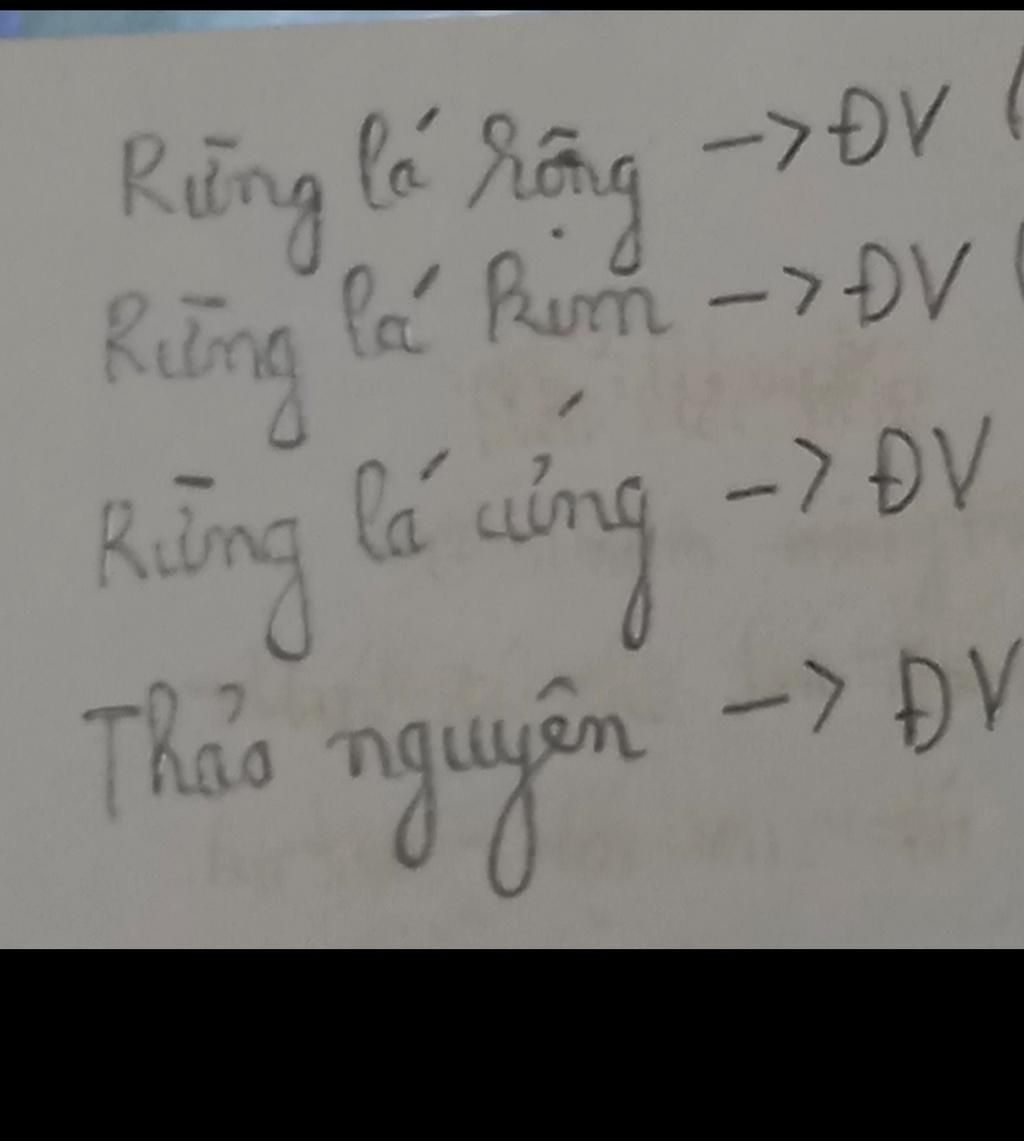 Rừng lá rộng -> ĐV (
Rừng lá kim -> ĐV (
Rừng lá cứng -> ĐV
Thảo nguyên -> ĐV